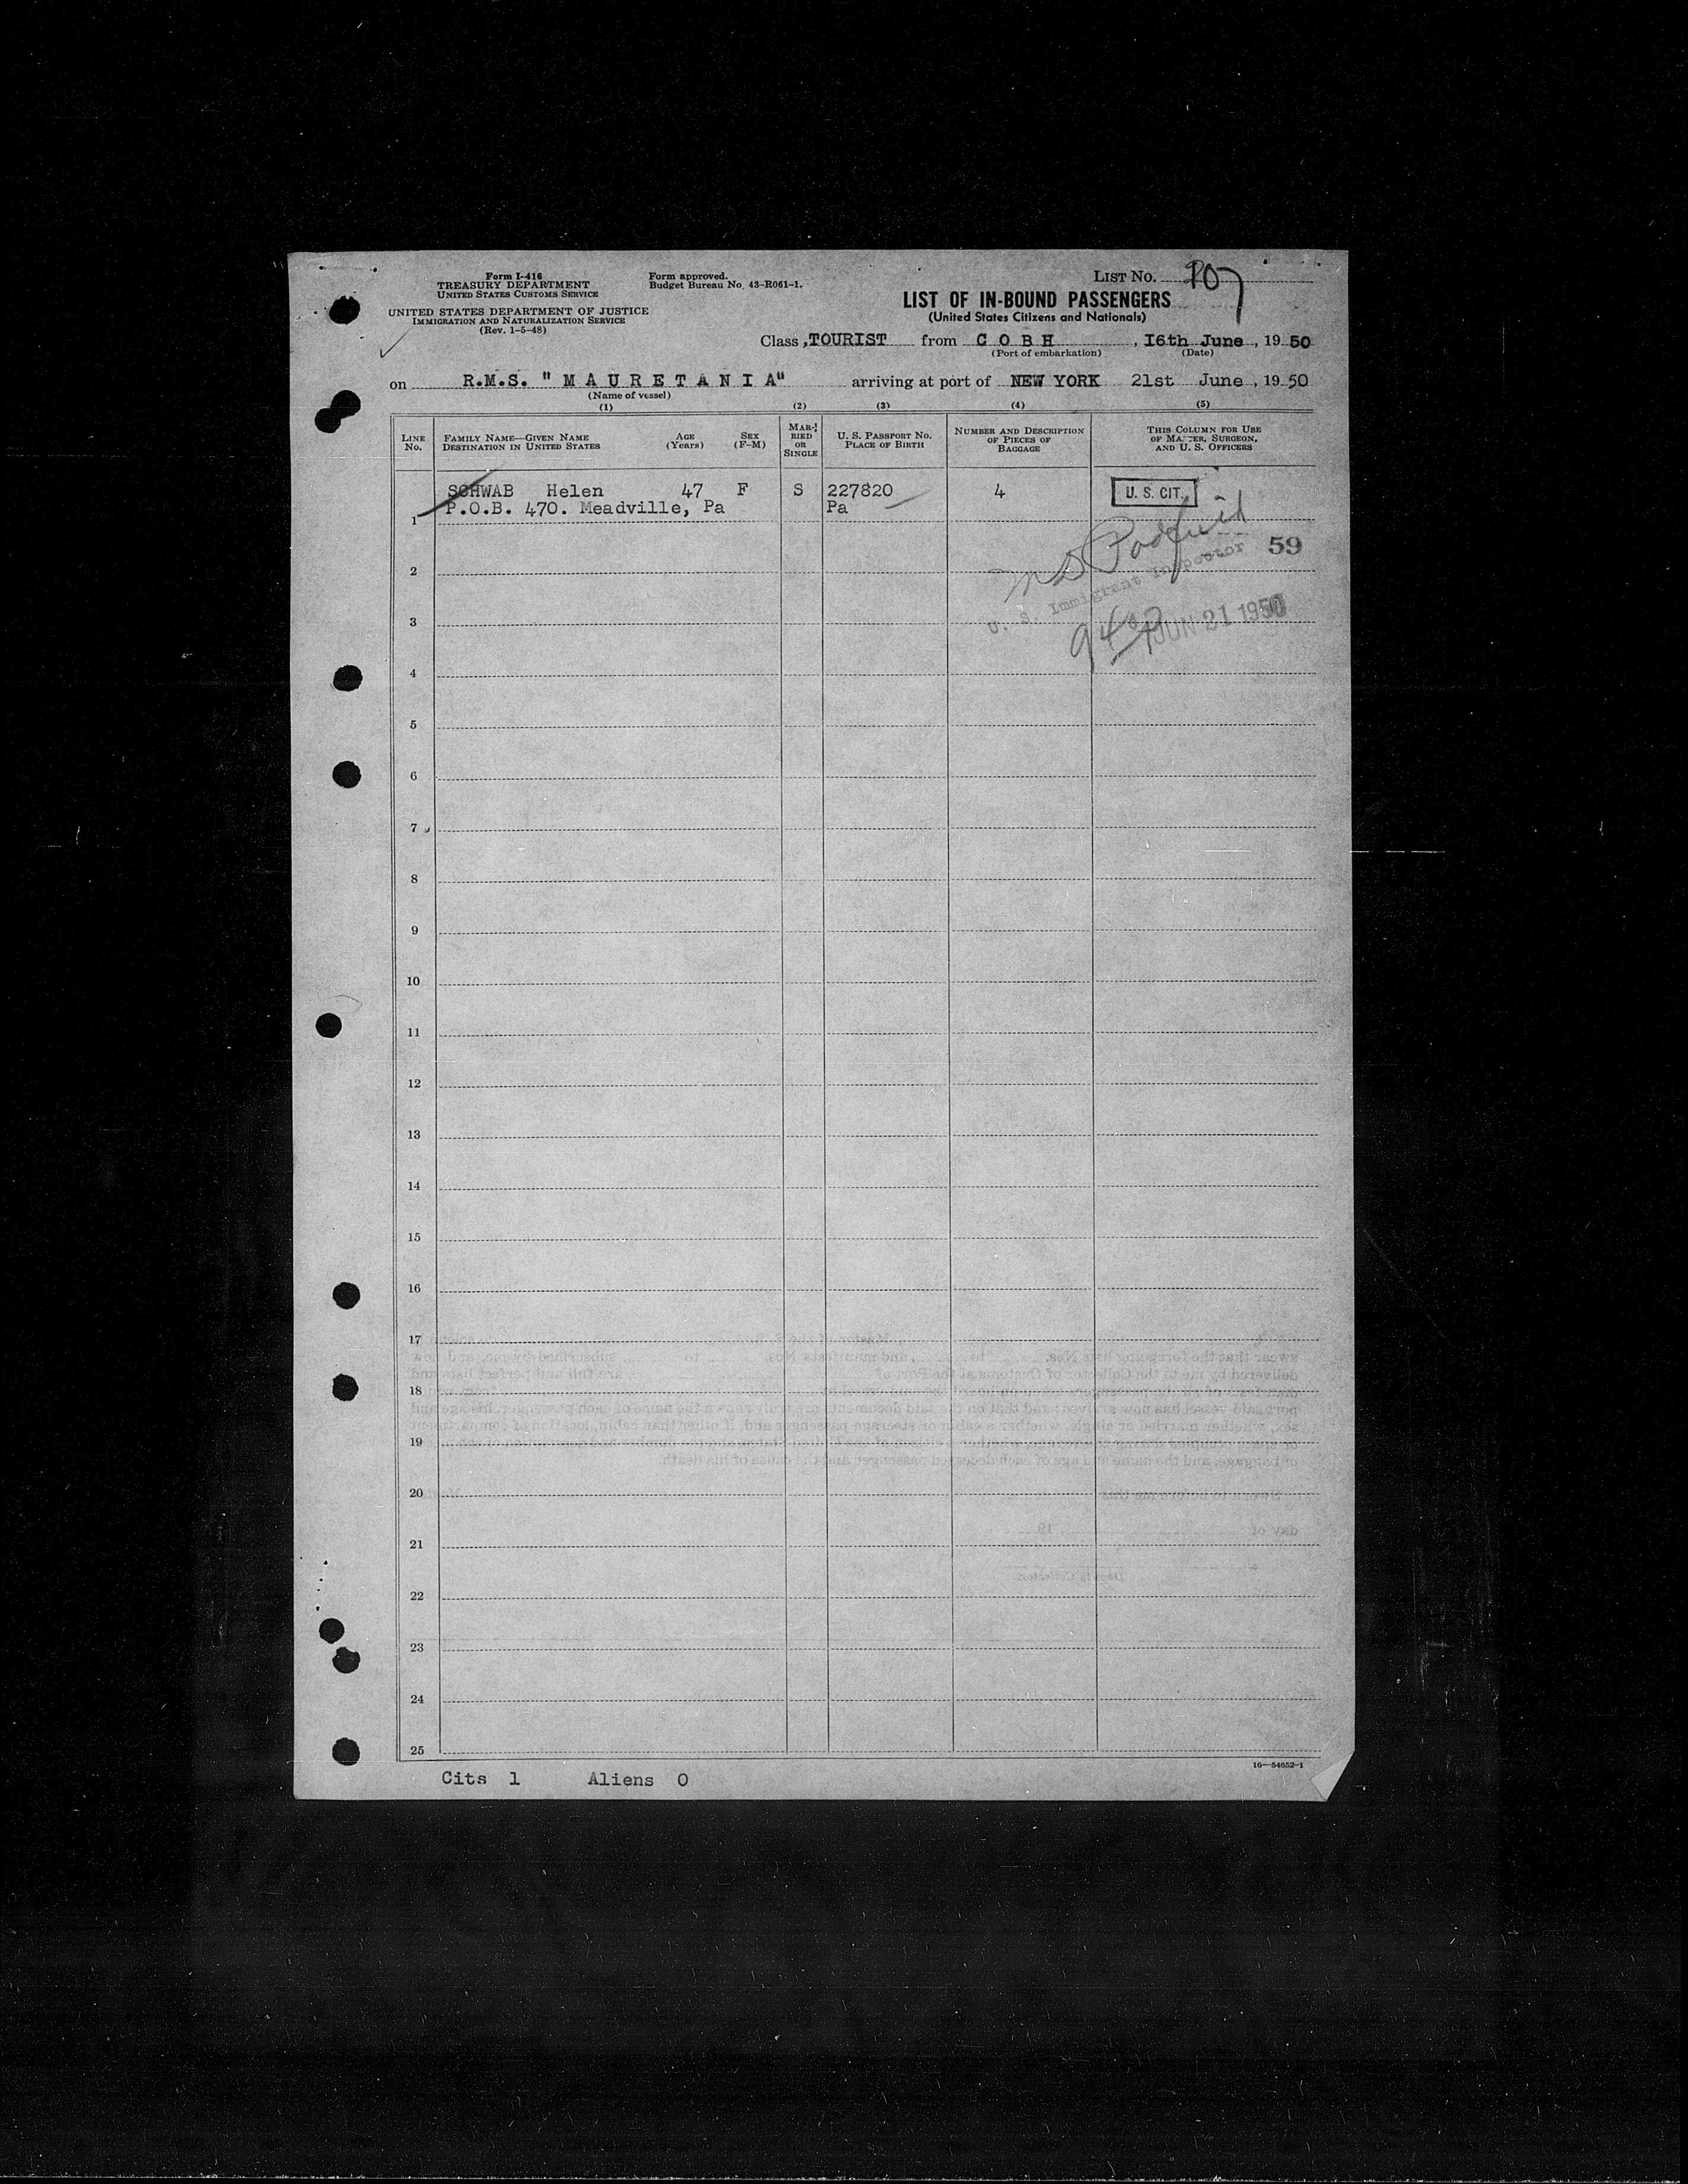 Form I-416
TREASURY DEPARTMENT
UNITED STATES CUSTOMS SERVICE
UNITED STATES DEPARTMENT OF JUSTICE
IMMIGRATION AND NATURALIZATION SERVICE
(Rev. 1-5-48)
Form approved.
Budget Bureau No. 43-R061-1.
LIST NO. 207
LIST OF IN-BOUND PASSENGERS
(United States Citizens and Nationals)
Class, TOURIST from C O B H, 16th June, 19 50
(Port of embarkation) (Date)
on R.M.S. "M A U R E T A N I A" arriving at port of NEW YORK 21st June, 19 50
(Name of vessel)
(1) (2) (3) (4) (5)
LINE NO.
FAMILY NAME—GIVEN NAME
DESTINATION IN UNITED STATES
AGE (Years)
SEX (F-M)
MARRIED OR SINGLE
U. S. PASSPORT NO.
PLACE OF BIRTH
NUMBER AND DESCRIPTION OF PIECES OF BAGGAGE
THIS COLUMN FOR USE OF MASTER, SURGEON, AND U. S. OFFICERS
SCHWAB Helen 47 F S 227820 4 U. S. CIT.
1 P.O.B. 470. Meadville, Pa Pa
59
2
U. S. Immigrant Inspector
3
JUN 21 1950
4
5
6
7
8
9
10
11
12
13
14
15
16
17
18
19
20
21
22
23
24
25
16—54652-1
Cits 1 Aliens 0